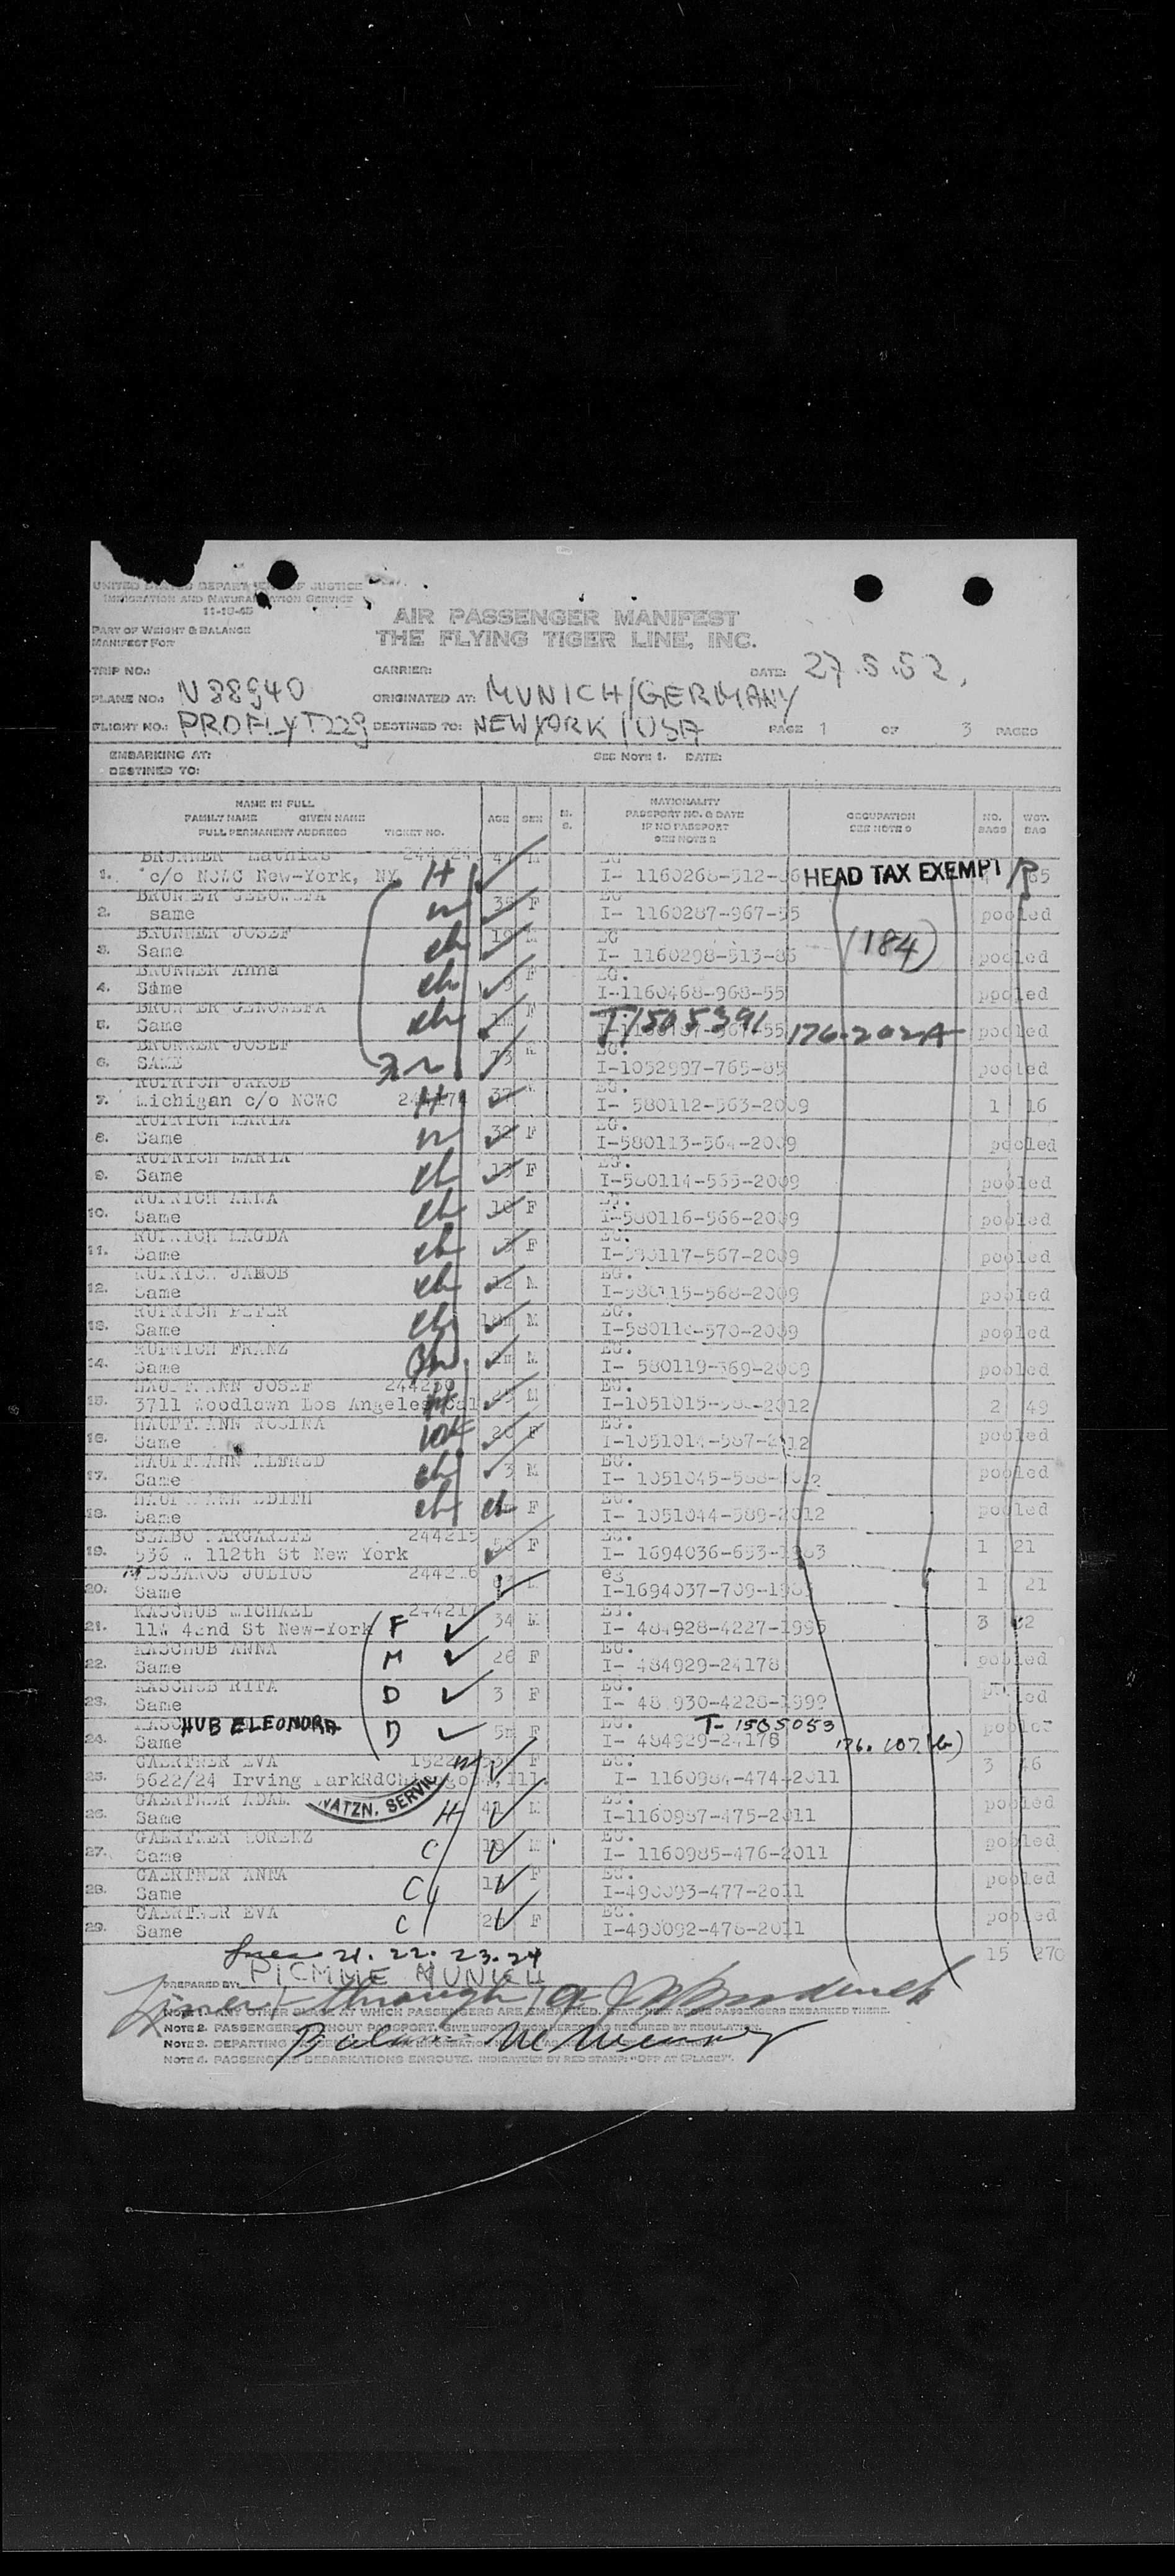 UNITED STATES DEPARTMENT OF JUSTICE
IMMIGRATION AND NATURALIZATION SERVICE
11-15-45
AIR PASSENGER MANIFEST
THE FLYING TIGER LINE, INC.
PART OF WEIGHT & BALANCE
MANIFEST FOR
TRIP NO.: CARRIER: DATE: 27.5.52,
PLANE NO.: N88940 ORIGINATED AT: MUNICH/GERMANY
FLIGHT NO.: PROFLYT229 DESTINED TO: NEWYORK/USA PAGE 1 OF 3 PAGES
EMBARKING AT: SEE NOTE 1. DATE:
DESTINED TO:
NAME IN FULL
FAMILY NAME GIVEN NAME
FULL PERMANENT ADDRESS TICKET NO. AGE SEX M. S. NATIONALITY PASSPORT NO. & DATE IF NO PASSPORT SEE NOTE 2 OCCUPATION SEE NOTE 3 NO. BAGS WGT. BAG
BRUNNER Mathias EG
1. c/o NCWC New-York, NY H I- 1160268-512- HEAD TAX EXEMPT
BRUNNER GENOWEFA 35 F EG
2. same I- 1160287-967-55 pooled
BRUNNER JOSEF 19 M EG
3. Same ch I- 1160298-513-85 (184) pooled
BRUNNER Anna 9 F EG.
4. Same ch I-1160468-968-55 pooled
BRUNNER GENOWEFA F T1505391
5. Same ch 176-202A pooled
BRUNNER JOSEF EG.
6. SAME I-1052997-765-85 pooled
RUPRICH JAKOB 37 EG.
7. Michigan c/o NCWC H I- 580112-563-2009 1 16
RUPRICH MARIA 32 F EG.
8. Same I-580113-564-2009 pooled
RUPRICH MARIA F EG.
9. Same ch I-580114-565-2009 pooled
RUPRICH ANNA 10 F EG.
10. Same ch I-580116-566-2009 pooled
RUPRICH MAGDA F EG.
11. Same ch I-580117-567-2009 pooled
RUPRICH JAKOB 12 M EG.
12. Same ch I-580115-568-2009 pooled
RUPRICH PETER M EG.
13. Same ch I-580118-570-2009 pooled
RUPRICH FRANZ M EG.
14. Same ch I- 580119-569-2009 pooled
HAUPTMANN JOSEF 244230 M EG.
15. 3711 Woodlawn Los Angeles Cal I-1051015-586-2012 2 49
HAUPTMANN ROSINA F EG.
16. Same I-1051014-587-2012 pooled
HAUPTMANN ALFRED 3 M EG.
17. Same ch I- 1051045-588-2012 pooled
HAUPTMANN EDITH F EG.
18. Same ch I- 1051044-589-2012 pooled
SZABO MARGARETE 244215 F EG.
19. 536 W 112th St New York I- 1694036-653-1983 1 21
MESZAROS JULIUS eg
20. Same I-1694037-709- 1 21
KASCHUB MICHAEL 244217 34 M EG.
21. 11W 42nd St New-York F I- 484928-4227-1995 3
KASCHUB ANNA 26 F EG.
22. Same M I- 484929-24178 pooled
KASCHUB RITA 3 F EG.
23. Same D I- 484930-4228-1999 pooled
KASCHUB ELEONORA 5m F EG. T-1505053
24. Same D I- 484929-24178 176.107(b) pooled
GAERTNER EVA F EG. 3 46
25. 5622/24 Irving ParkRd Chicago, Ill. I- 1160984-474-2011
NATZN. SERVICE
GAERTNER ADAM M EG.
26. Same H I-1160987-475-2011 pooled
GAERTNER LORENZ EG.
27. Same C I- 1160985-476-2011 pooled
GAERTNER ANNA F EG.
28. Same C I-490093-477-2011 pooled
GAERTNER EVA F EG.
29. Same C I-490092-478-2011 pooled
Lines 21. 22. 23. 24 15 270
PREPARED BY: PICMME MUNICH
Lines 1 through 19
NOTE 1. ANY OTHER PLACE AT WHICH PASSENGERS ARE EMBARKED. STATE THAT ABOVE PASSENGERS EMBARKED THERE.
NOTE 2. PASSENGERS WITHOUT PASSPORT. GIVE INFORMATION HEREON AS REQUIRED BY REGULATION.
Balance
NOTE 3. DEPARTING
NOTE 4. PASSENGERS DEBARKATIONS ENROUTE. INDICATED BY RED STAMP: "OFF AT (PLACE)".